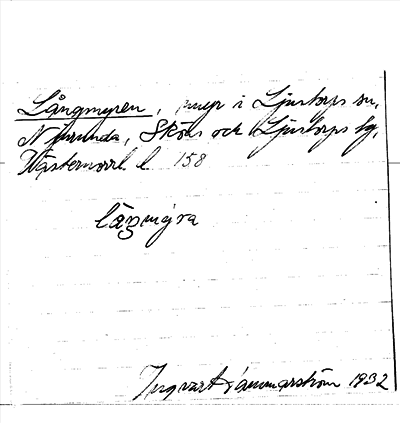 Långmyren, myr i Ljustorps sn,
Njurunda, Sköns och Ljustorps tg,
Västernorrl. l. 158
låŋmýra
Ingvart Hammarström 1932